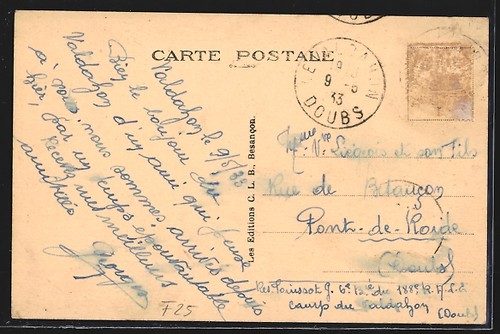 CARTE POSTALE
Valdahon le 9/8/33
Bien le bonjour du
Valdahon d'un ami qui pense
à vous nous sommes arrivés depuis
hier, par un temps épouvantable
Recevez mes meilleures
amitiés
Georges
Les Editions C. L. B., Besançon.
VALDAHON
9 - 8
33
DOUBS
Mme Vve Liégeois et son fils
Rue de Besançon
Pont-de-Roide
(Doubs)
F25
6e Bie du 188e R.A.L.
Camp du Valdahon (Doubs)